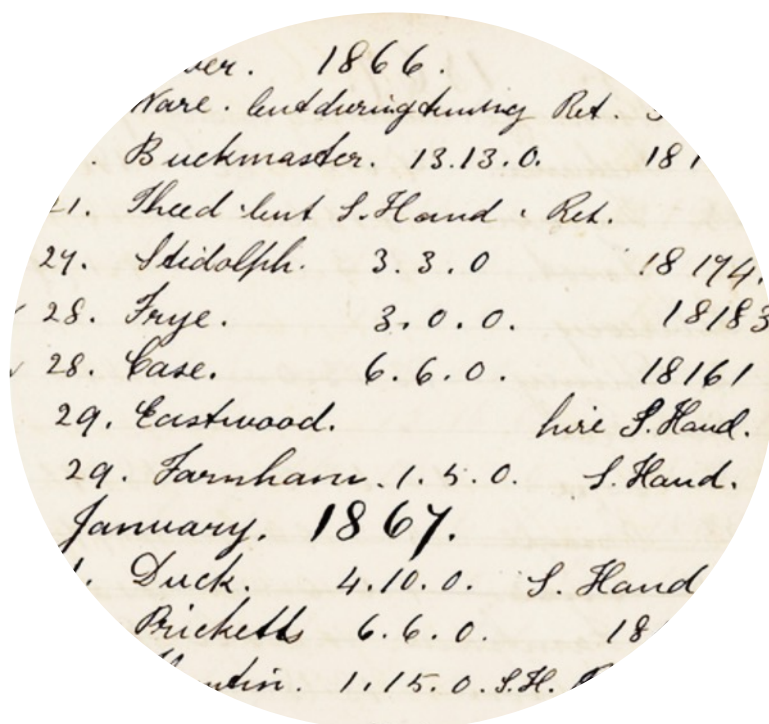 1866.
Ware. lent during tuning Ret.
Buckmaster. 13.13.0. 181
21. Theed lent S. Hand. Ret.
27. Stidolph. 3.3.0 18174.
28. Frye. 3.0.0. 18183
28. Case. 6.6.0. 18161
29. Eastwood. hire S. Hand.
29. Farnham. 1.5.0. S. Hand.
January. 1867.
Duck. 4.10.0. S. Hand
Pricketts 6.6.0. 18
1.15.0. S.H.